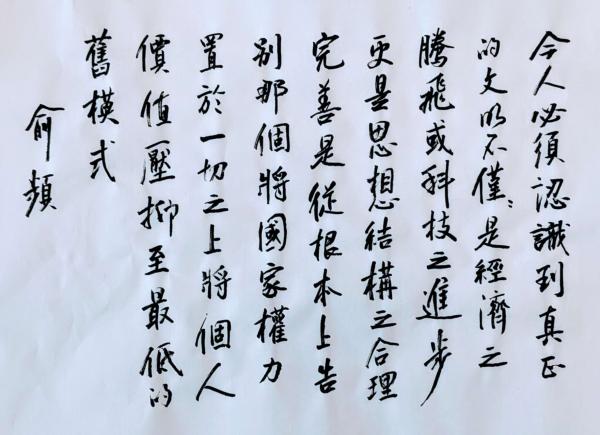 今人必須認識到真正
的文明不僅〻是經濟之
騰飛或科技之進步
更是思想結構之合理
完善是從根本上告
別那個將國家權力
置於一切之上將個人
價值壓抑至最低的
舊模式
俞頻